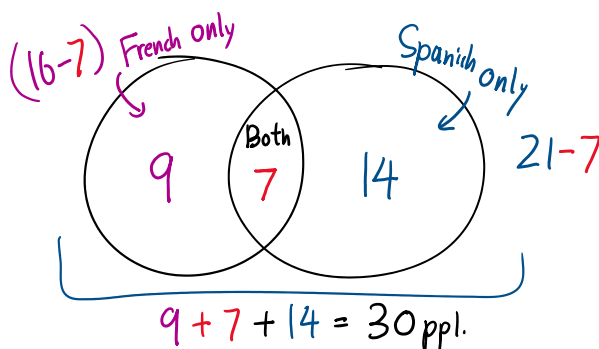 (16-7) French only
Spanish only
Both
9
7
14
21-7
9+7+14 = 30 ppl.